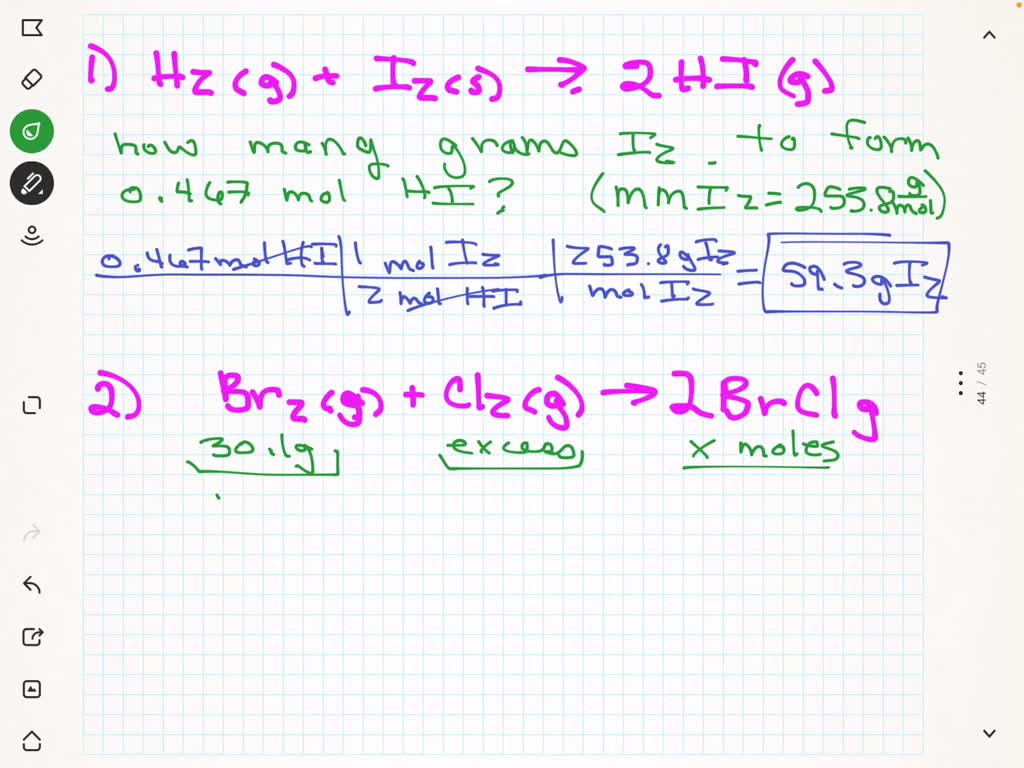 1) H2(g) + I2(s) → 2HI(g)
how many grams I2. to form
0.467 mol HI? (mmI2=253.8 g/mol)
0.467 mol HI | 1 mol I2 | 253.8 g I2
2 mol HI | mol I2 = 59.3g I2
2) Br2(g) + Cl2(g) → 2BrCl g
30.1g excess x moles
44 / 45